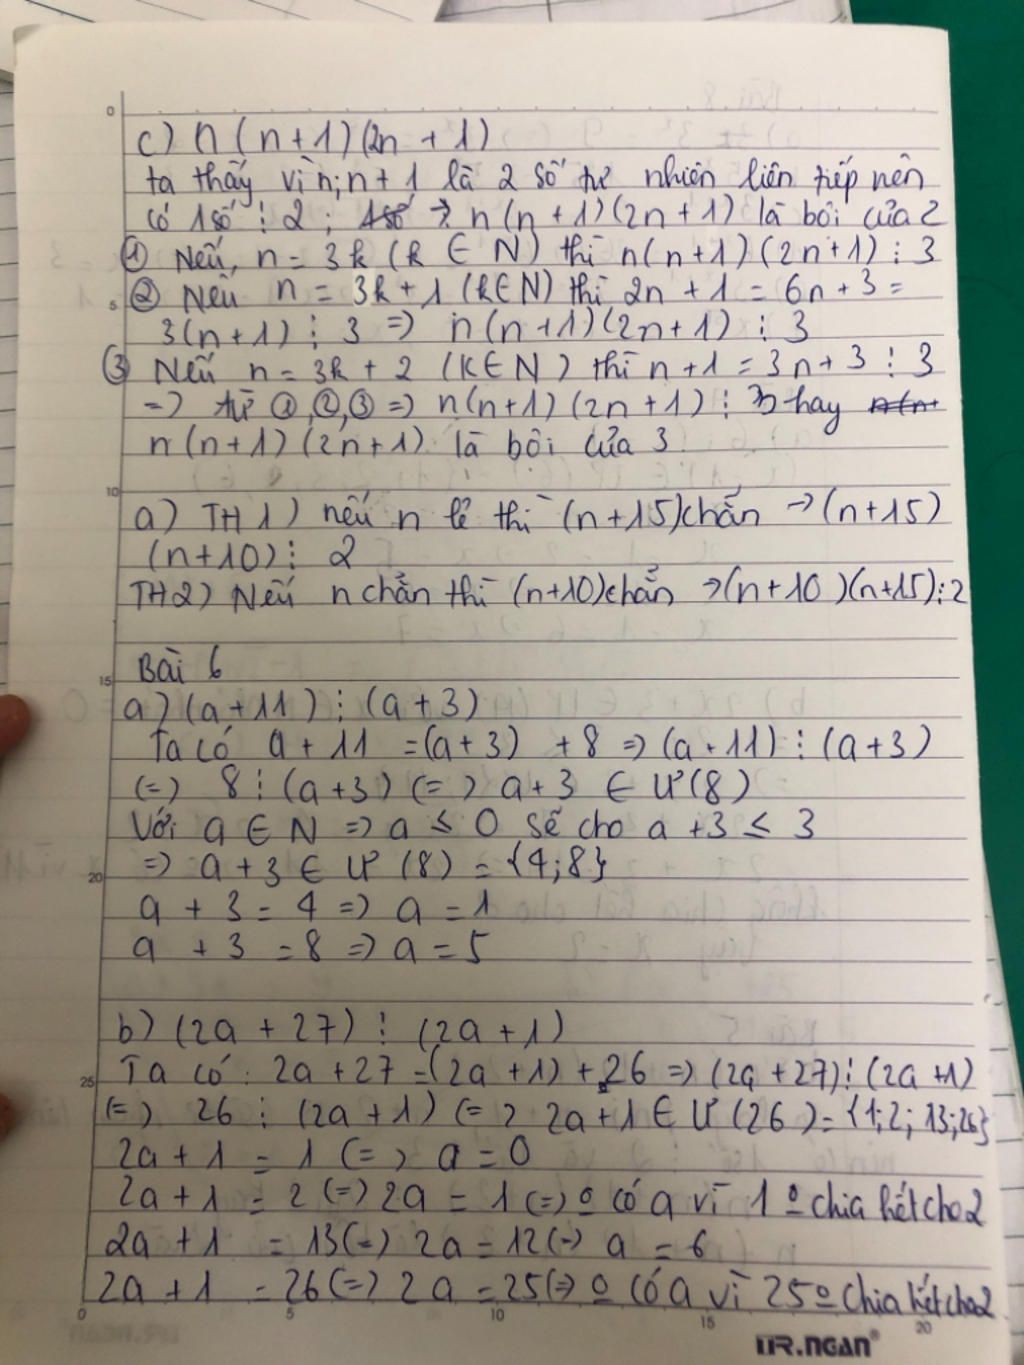 c) n(n+1)(2n+1)
ta thấy vì n;n+1 là 2 số tự nhiên liên tiếp nên
có 1 số ⋮ 2; 1 số → n(n+1)(2n+1) là bôi của 2
① Nếu, n = 3k (k ∈ N) thì n(n+1)(2n+1) ⋮ 3
② Nêu n = 3k+1 (k∈N) thì 2n+1 = 6n+3 =
3(n+1) ⋮ 3 => n(n+1)(2n+1) ⋮ 3
③ Nếu n = 3k + 2 (k∈N) thì n+1 = 3n+3 ⋮ 3
=> từ ①,②,③ => n(n+1)(2n+1) ⋮ 3 hay n(n+
n(n+1)(2n+1) là bôi của 3
a) TH1) nếu n lẻ thì (n+15)chẵn → (n+15)
(n+10) ⋮ 2
TH2) Nếu n chẵn thì (n+10)chẵn → (n+10)(n+15) ⋮ 2
Bài 6
a) (a+11) ⋮ (a+3)
Ta có a+11 = (a+3) + 8 => (a+11) ⋮ (a+3)
(=) 8 ⋮ (a+3) (=) a+3 ∈ Ư(8)
Với a ∈ N => a ≤ 0 sẽ cho a+3 ≤ 3
=> a+3 ∈ Ư(8) = {4;8}
a + 3 = 4 => a = 1
a + 3 = 8 => a = 5
b) (2a+27) ⋮ (2a+1)
Ta có: 2a+27 = (2a+1) + 26 => (2a+27) ⋮ (2a+1)
(=) 26 ⋮ (2a+1) (=) 2a+1 ∈ Ư(26) = {1;2;13;26}
2a+1 = 1 (=) a = 0
2a+1 = 2 (=) 2a = 1 (=) º có a vì 1 º chia hết cho 2
2a+1 = 13 (=) 2a = 12 (=) a = 6
2a+1 = 26 (=) 2a = 25 (=) º có a vì 25 º chia hết cho 2
0
5
10
15
20
25
0 5 10 15 20
MR.NGAN®